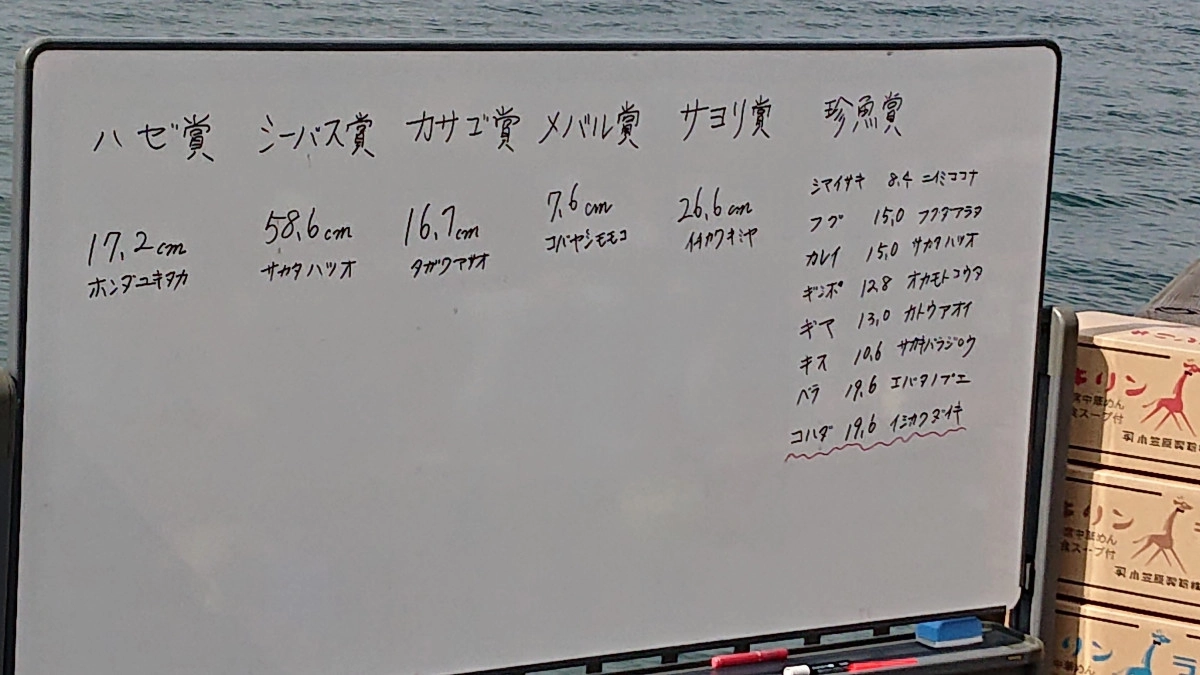 ハゼ賞
17,2cm
ホンダユキタカ
シーバス賞
58,6cm
サカタハツオ
カサゴ賞
16,7cm
タガワアサオ
メバル賞
7,6cm
コバヤシモモコ
サヨリ賞
26,6cm
イチカワキミヤ
珍魚賞
シマイサキ 8,4 ニイミココナ
フグ 15,0 フクダアラタ
カレイ 15,0 サカタハツオ
ギンポ 12,8 オカモトコウタ
ギマ 13,0 カトウアオイ
キス 10,6 サカキバラジロウ
ベラ 19,6 エバタノブエ
コハダ 19,6 イシカワダイキ
キリン
食スープ付
キリン
食スープ付
リン